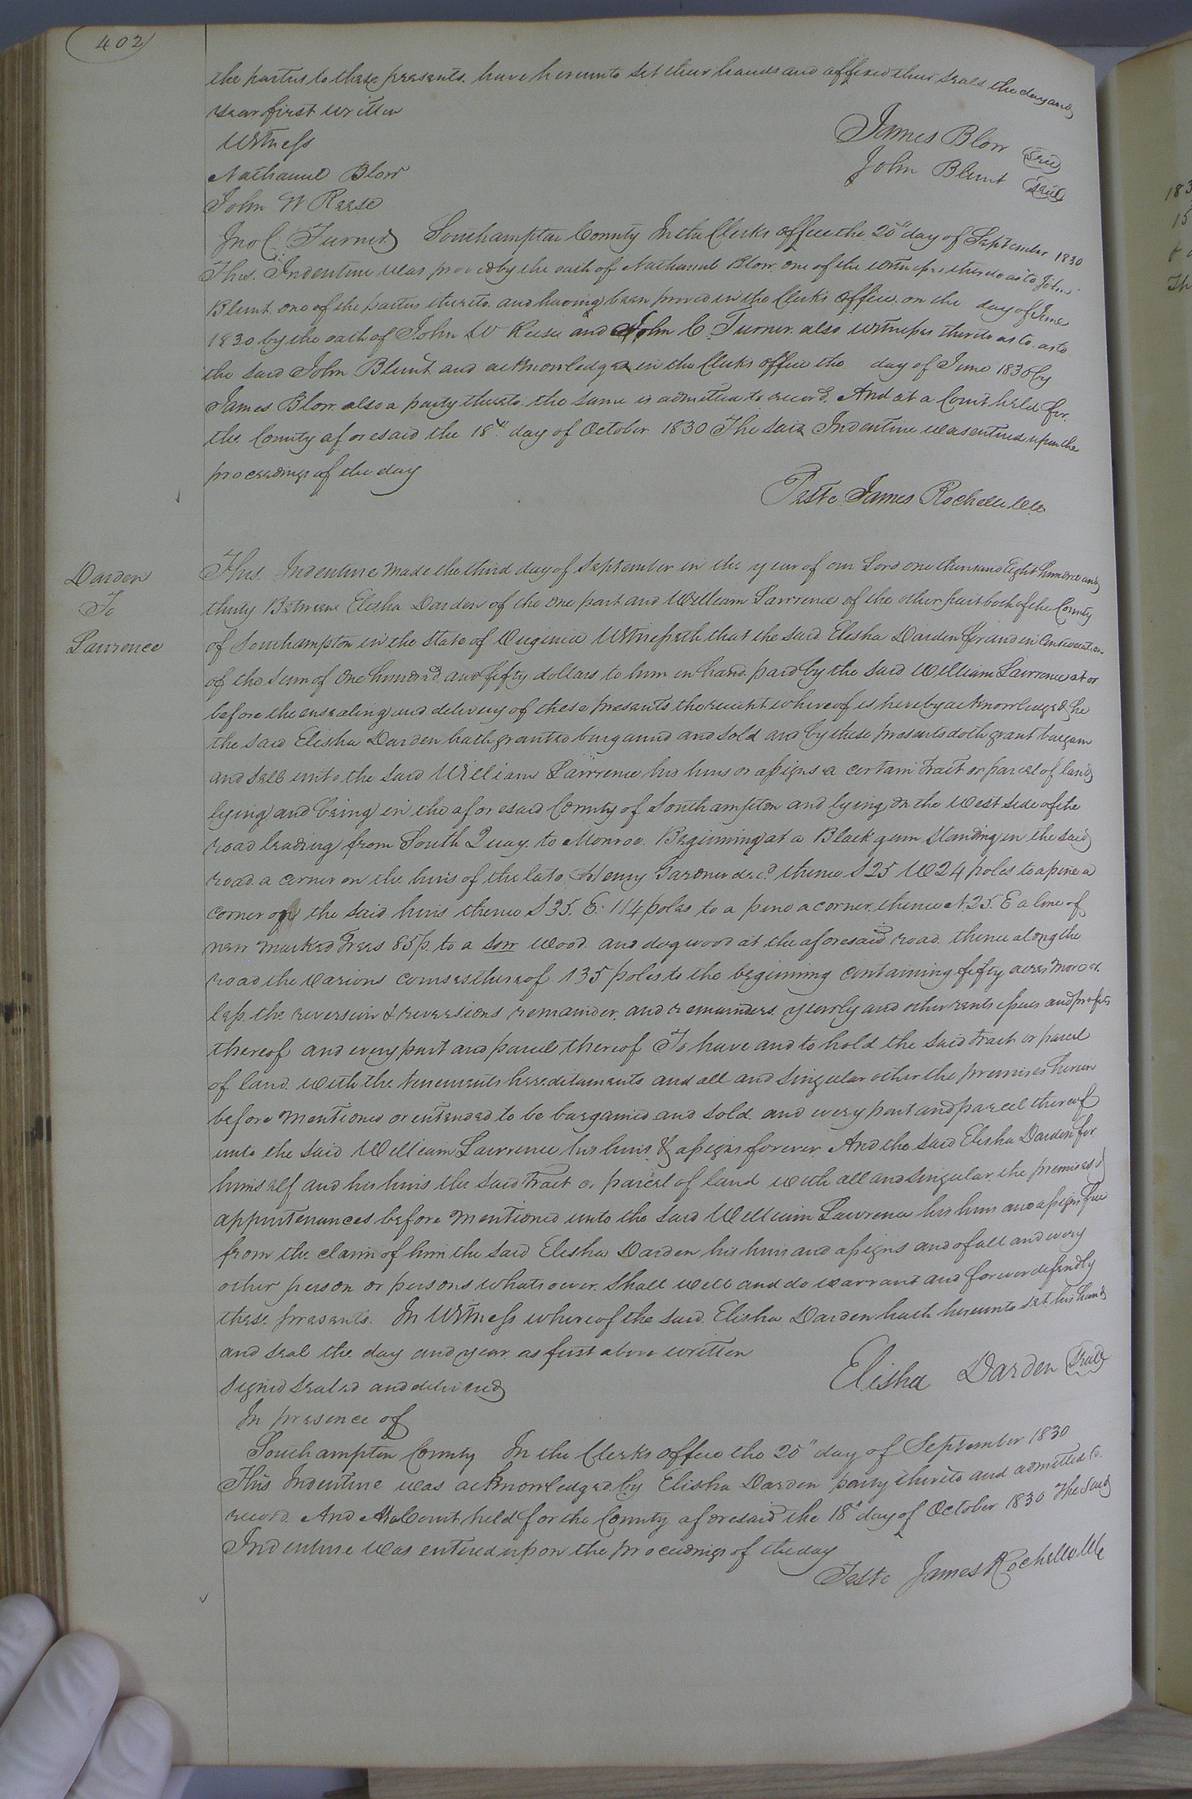 402
the parties to these presents have hereunto set their hands and affixed their seals the day and
year first written
Witness
James Blow Seal
Nathaniel Blow
John Blunt Seal
John W Reese
Jno C. Turner Southampton County In the Clerks office the 20th day of September 1830
This Indenture was proved by the oath of Nathaniel Blow one of the witnesses thereto as to John
Blunt one of the parties thereto and having been proved in the Clerks office on the day of June
1830 by the oath of John W Reese and John C. Turner also witnesses thereto as to as to
the said John Blunt and acknowledged in the Clerks office the day of June 1830 by
James Blow also a party thereto the same is admitted to record. And at a Court held for
the County aforesaid the 18th day of October 1830 The said Indenture was entered upon the
proceedings of the day
Teste James Rochelle Clk
Darden
To
Lawrence
This Indenture made the third day of September in the year of our Lord one thousand Eight hundred and
thirty Between Elisha Darden of the one part and William Lawrence of the other part both of the County
of Southampton in the State of Virginia Witnesseth that the said Elisha Darden for and in Consideration
of the sum of One hundred and fifty dollars to him in hand paid by the said William Lawrence at or
before the ensealing and delivery of these presents the receipt whereof is hereby acknowledged he
the said Elisha Darden hath granted bargained and sold and by these presents doth grant bargain
and sell unto the said William Lawrence his heirs or assigns a certain tract or parcel of land
lying and being in the aforesaid County of Southampton and lying on the West side of the
road leading from South Quay to Monroe. Beginning at a Black gum standing in the said
road a corner on the heirs of the late Henry Gardner decd. thence S 25 W 24 poles to a pine a
corner of the said heirs thence S 35. E. 114 poles to a pine a corner, thence N. 25. E a line of
new marked trees 85 p. to a sorr wood and dogwood at the aforesaid road. thence along the
road the various courses thereof 135 poles to the beginning containing fifty acres more or
less the reversion & reversions remainder and remainders yearly and other rents issues and profits
thereof and every part and parcel thereof To have and to hold the said tract or parcel
of land with the tenements hereditaments and all and singular other the premises herein
before mentioned or intended to be bargained and sold and every part and parcel thereof
unto the said William Lawrence his heirs & assigns forever And the said Elisha Darden for
himself and his heirs the said tract or parcel of land with all and singular the premises &
appurtenances before mentioned unto the said William Lawrence his heirs and assigns free
from the claim of him the said Elisha Darden his heirs and assigns and of all and every
other person or persons whatsoever shall will and do warrant and forever defend by
these presents. In Witness whereof the said Elisha Darden hath hereunto set his hand
and seal the day and year as first above written
Elisha Darden Seal
Signed sealed and delivered
In presence of
Southampton County In the Clerks office the 20" day of September 1830
This Indenture was acknowledged by Elisha Darden party thereto and admitted to
record. And At a Court held for the County aforesaid the 18th day of October 1830 The said
Indenture was entered upon the proceedings of the day
Teste James Rochelle Clk
183
15
Th